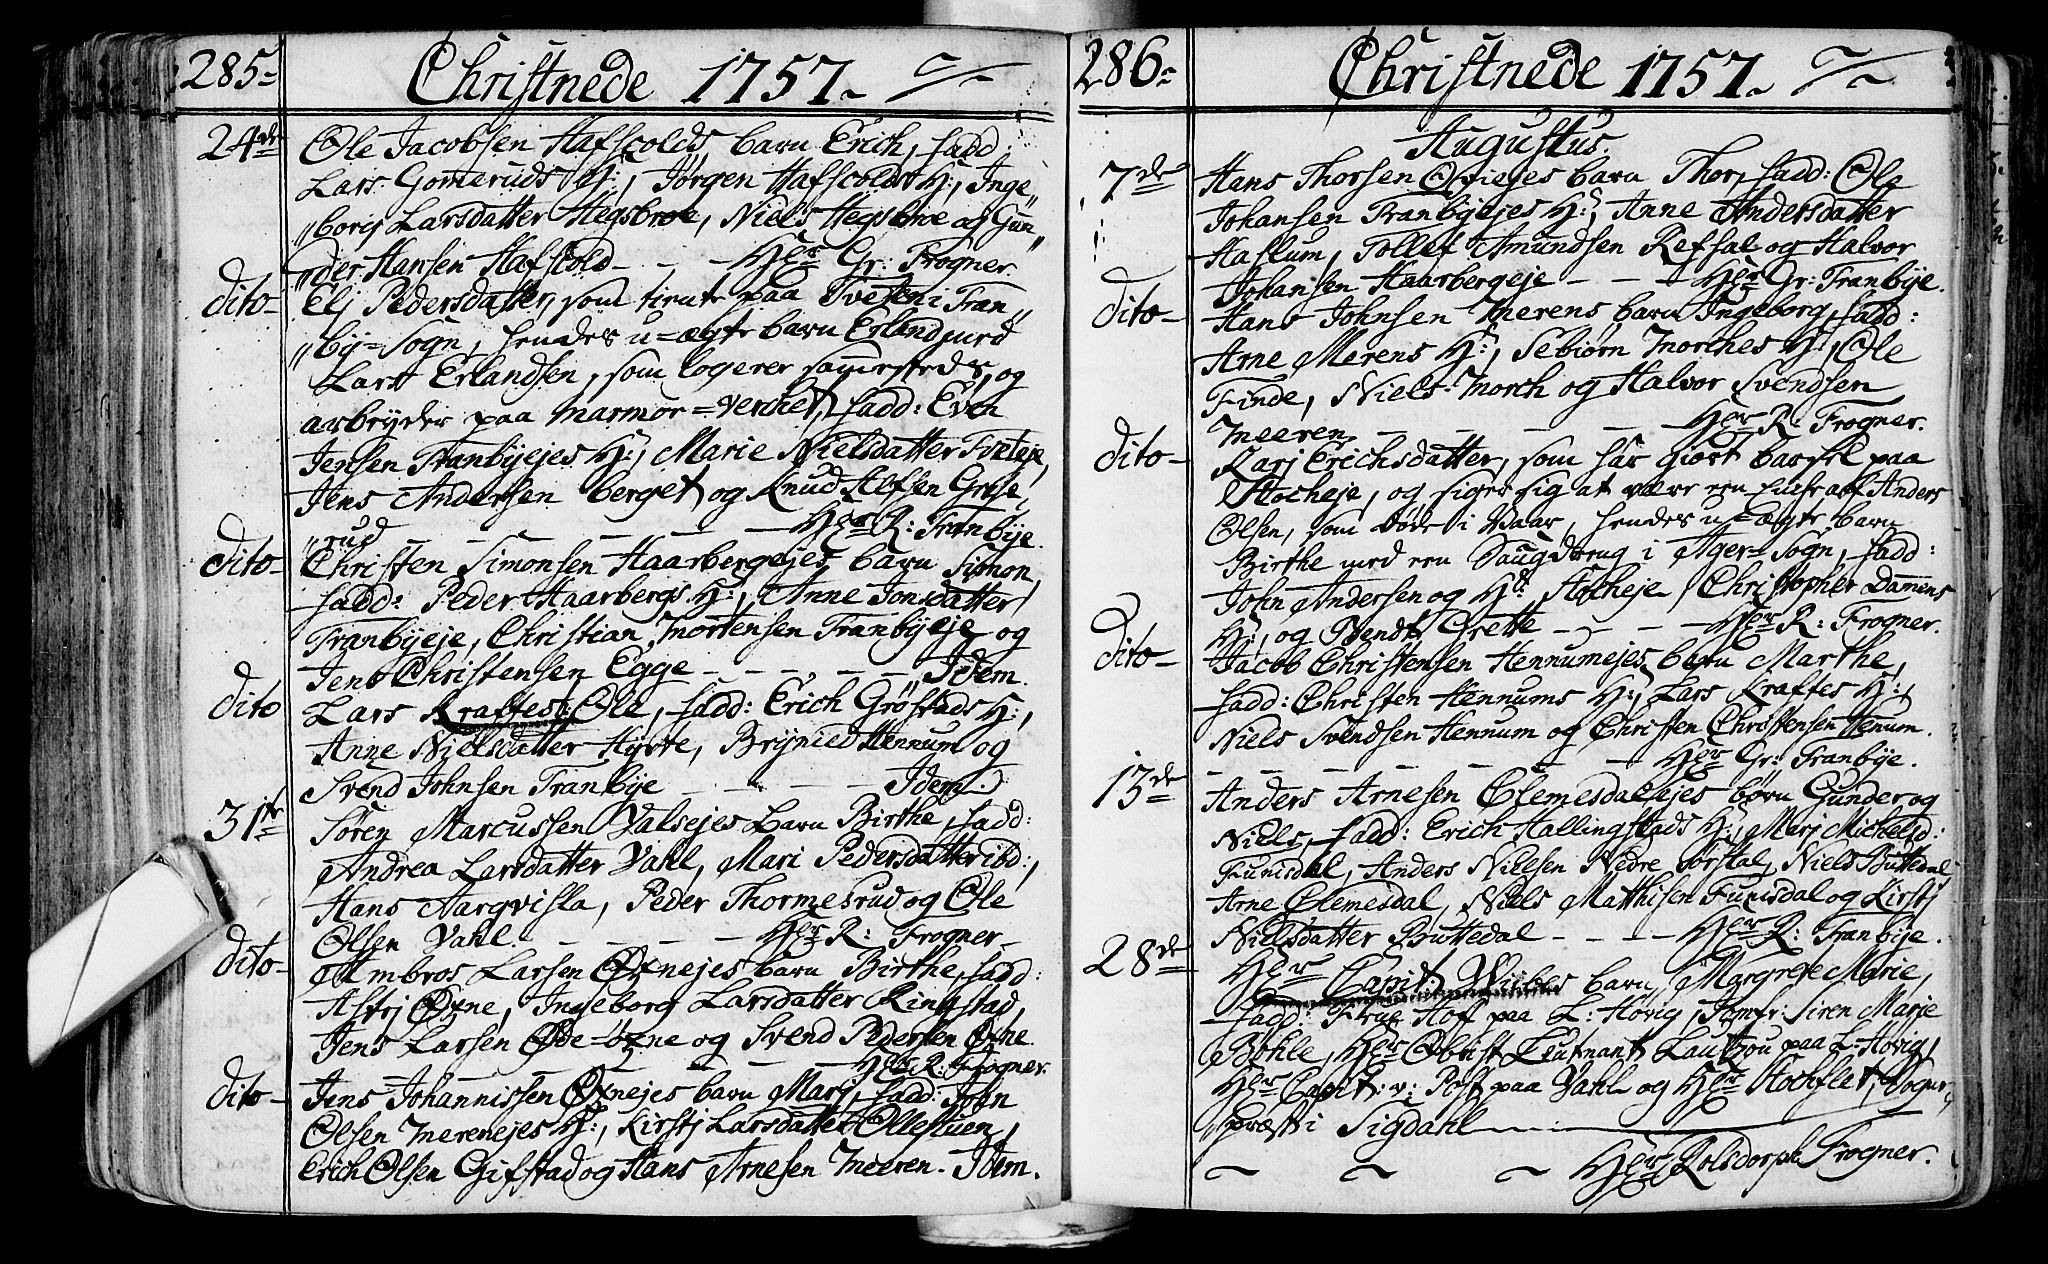 285-
Christnede 1757.
24de Ole Jacobsen Hafscolds barn Erich, fadd:
Lars Gomeruds H:, Jørgen Hafscolds H:, Inge„
„borg Larsdatter Hegsbroe, Niels Hegsbroe og Gun„
„der Hansen Hafscold - - - Her Gr: Frogner.
dito- Elj Pedersdatter, som tiente paa Tveten i Fran„
„by-Sogn, hendes u-ægte barn Erland med
Lars Erlandsen, som logerer sammesteds, og
arbeyder paa Marmor-verchet, fadd: Even
Jensen Franbyejes H:, Marie Nielsdatter Tveteje,
Jens Andersen berget og Knud Alfsen Grøse„
„rud - - - - - Her R: Franbye.
dito- Christen Simonsen Haarbergejes barn Simon,
fadd: Peder Haarbergs H:, Anne Jonsdatter
Franbyeje, Christian Mortensen Franbyeje og
Jens Christensen Egge - - - - - Idem.
dito Lars Kraftes: Ole, fadd: Erich Grøstads H:,
Anne Nielsdatter Hyrte, Brynild Hennum og
Svend Johnsen Franbye - - - - Idem.
31te Søren Marcussen Valsejes barn Birthe, fadd:
Andrea Larsdatter Vahl, Mari Pedersdatter ibd:,
Hans Aarqvisla, Peder Thormesrud og Ole
Olsen Vahl. - - - - Her R: Frogner-
dito- Ambros Larsen Oxnejes barn Birthe, fadd:
Astrj Oxne, Ingeborg Larsdatter Ringstad,
Jens Larsen Øde-øxne og Svend Pedersen Oxne.
- - - - - Her R: Frogner.
dito- Jens Johannissen Oxnejes barn Marj, fadd: John
Olsen Merenejes H:, Kirstj Larsdatter Ollestuen,
Erich Olsen Gifstad og Hans Arnesen Meeren. Idem.
286-
Christnede 1757.
Augustus.
7de Hans Thorsen Ovnejes barn Thor, fadd: Ole
Johansen Franbyejes H:, Anne Andersdatter
Haslum, Tollef Amundsen Refsal og Halvor
Johansen Haarbergeje - - - Her Gr: Franbye.
dito- Hans Johnsen Merens barn Ingeborg, fadd:
Arne Merens H:, Sebiørn Morches H:, Ole
Finde, Niels Morch og Halvor Svendsen
Meeren - - - - - Her R: Frogner.
dito- Karj Erichsdatter, som har giort barsel paa
Stocheje, og siger sig at være en Enke af Anders
Olsen, som døde i Vaar, hendes u-ægte barn
Birthe med en Saugdreng i Ager-Sogn, fadd:
John Andersen og H: Stocheje, Christopher Damens
H:, og Bendt Grette - - - - Her R: Frogner.
dito- Jacob Christensen Hennumejes barn Marthe,
fadd: Christen Hennums H:, Lars Kraftes H:,
Niels Svendsen Hennum og Christen Christensen Henum.
- - - - - - - Her Gr: Franbye.
13de Anders Arnesen Clemesdalejes børn Gunder og
Niels, fadd: Erich Hallingstads H:, Marj Michelsd:
Fumsdal, Anders Nilesen Nedre Sørstal, Niels Buttedal,
Arne Clemesdal, Niels Matthisen Fumsdal og Kirstj
Nielsdatter Buttedal - - - - Her R: Franbye.
28de Her Capit: Wiibes barn Margrete Marie,
fadd: Frue Hof paa L: Høvig, Jomfr: Siren Marie
Bøhle, Her Obrist Leutnant Lautrou paa L: Høvig,
Her Capit: v: Post paa Vahl og Her Stochflet, Sogne„
„præst i Sigdahl
Her Rolsdorph Frogner.